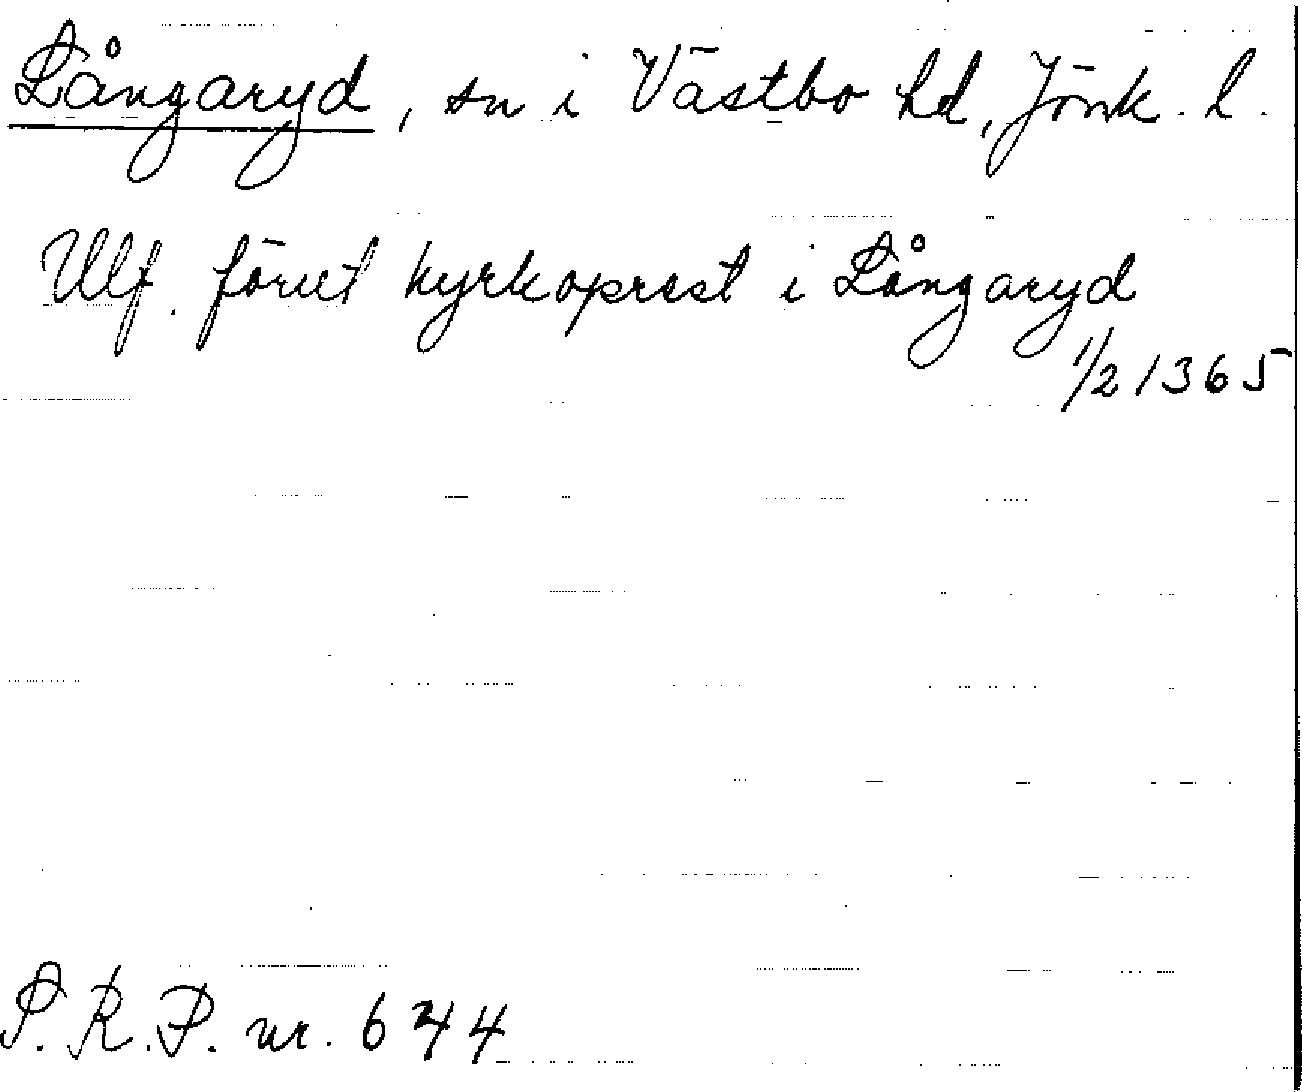 Långaryd, sn i Västbo hd, Jönk. l.
Ulf. föruet kyrkoprest i Långaryd
1/2 1365
P.R.P. nr. 644